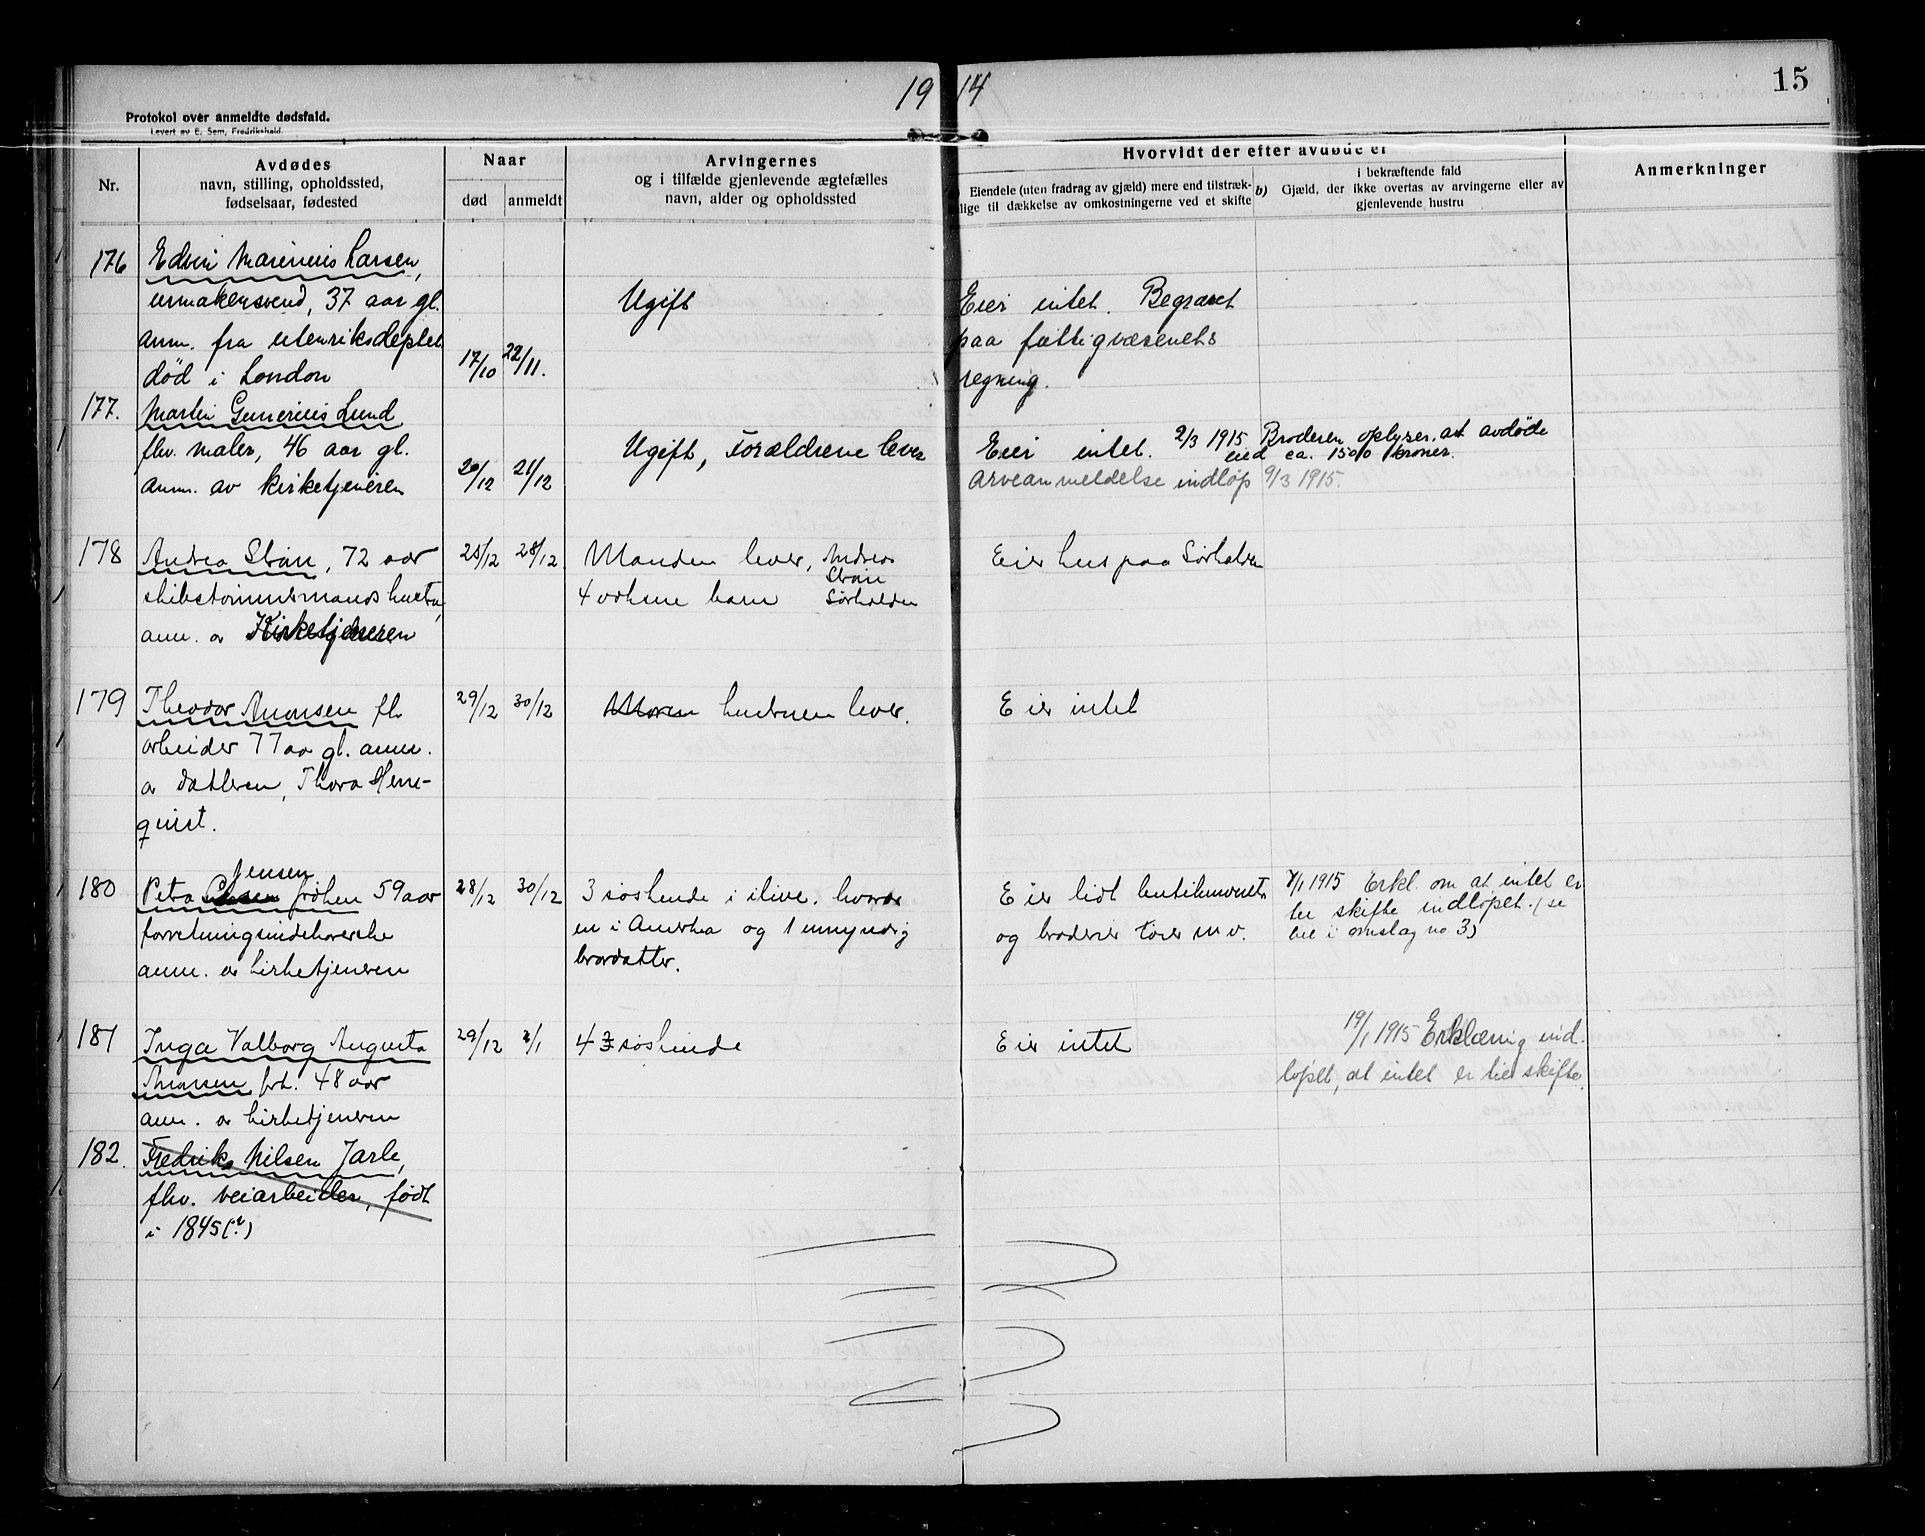 19 14
15
Protokol over anmeldte dødsfald.
Levert av E. Sem, Fredrikshald.
Nr.
Avdødes
navn, stilling, opholdssted,
fødselsaar, fødested
Naar
død
anmeldt
Arvingernes
og i tilfælde gjenlevende ægtefælles
navn, alder og opholdssted
Hvorvidt der efter avdøde er
Eiendele (uten fradrag av gjæld) mere end tilstræk-
lige til dækkelse av omkostningerne ved et skifte
b)
i bekræftende fald
Gjæld, der ikke overtas av arvingerne eller av
gjenlevende hustru
Anmerkninger
176
Edvin Marinius Larsen,
urmakersvend, 37 aar gl.
anm. fra utenriksdeptet
død i London
17/10
22/11.
Ugift
Eier intet. Begravet
paa fattigvæsenets
regning.
177.
Martin Gunerius Lund
fhv. maler, 46 aar gl.
anm. av kirketjeneren
20/12
21/12
Ugift, Forældrene lever
Eier intet. 2/3 1915 Broderen oplyser, at avdøde
eied ca. 1500 kroner.
Arveanmeldelse indløp 9/3 1915.
178
Andrea Strøm, 72 aar
skibstømmermands hustru
anm. av Kirketjeneren
25/12
28/12
Manden lever, Andreas
Strøm
4 voksne barn Sørhalden
Eier hus paa Sørhalden
179
Theodor Amonsen fh
arbeider 77 aa gl. anm.
av datteren, Thora Herre-
quist.
29/12
30/12
Moren hustruen lever.
Eier intet
180
Jensen
Petra frøken 59 aar
forretningsindehaverske
anm. av kirketjeneren
28/12
30/12
3 søskende i live. hvorav
en i Amerika og 1 umyndig
brordatter.
Eier lidt butikinventar
og broderier tøier m v.
7/1 1915 Erkl. om at intet er
til skifte indløpet. (se
bil i omslag no 3)
181
Inga Valborg Augusta
frk. 48 aar
anm. av kirketjeneren
29/12
2/1
4 3 søskende
Eier intet
19/1 1915 Erklæring ind-
løpet, at intet er til skifte.
182.
Fredrik Nilsen Jarle,
fhv. veiarbeider, født
i 1845(?)